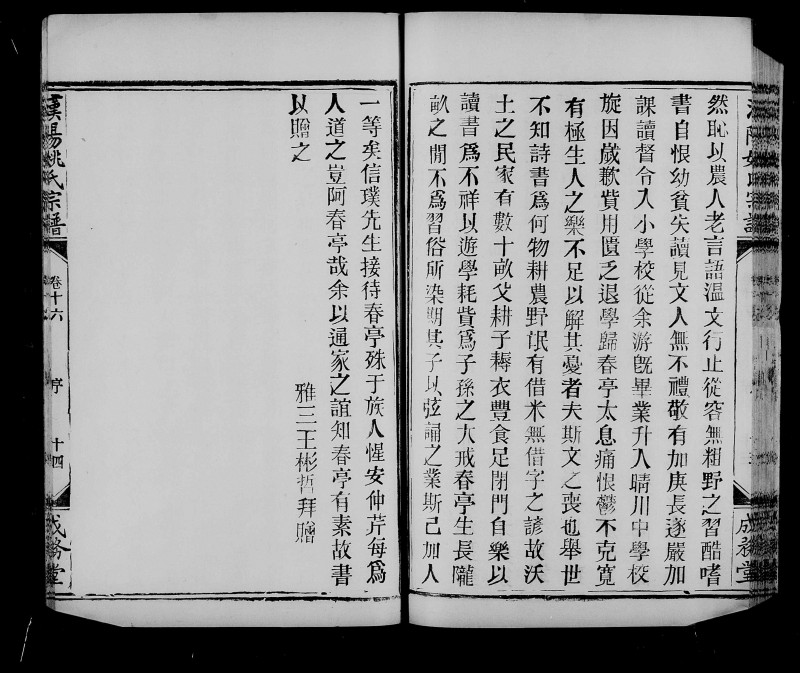 然恥以農人老言語溫文行止從容無粗野之習酷嗜
書自恨幼貧失讀見文人無不禮敬有加庚長遂嚴加
課讀督令入小學校從余游旣畢業升入晴川中學校
旋因歲歉貲用匱乏退學歸春亭太息痛恨鬱不克寬
有極生人之樂不足以解其憂者夫斯文之喪也舉世
不知詩書爲何物耕農野氓有借米無借字之諺故沃
土之民家有數十畝父耕子耨衣豐食足閉門自樂以
讀書爲不祥以遊學耗貲爲子孫之大戒春亭生長隴
畝之閒不爲習俗所染期其子以弦誦之業斯已加人
成務堂
一等矣信璞先生接待春亭殊于族人惺安仲芹每爲
人道之豈阿春亭哉余以通家之誼知春亭有素故書
以贈之
雅三王彬哲拜贈
漢陽姚氏宗譜
卷十六
序
十四
成務堂